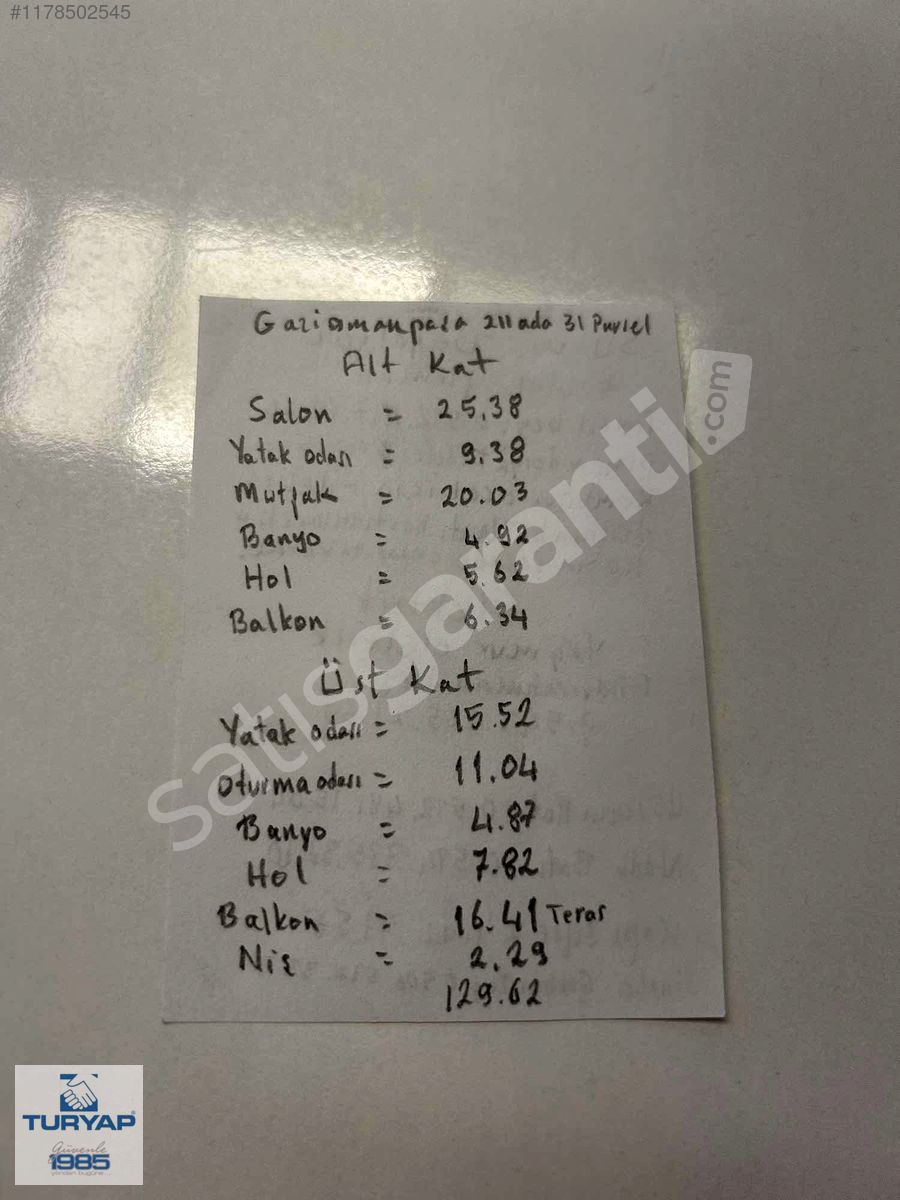 #1178502545
Gaziosmanpasa 211 ada 31 Parsel
Alt Kat
Salon = 25.38
Yatak odası = 9.38
Mutfak = 20.03
Banyo = 4.92
Hol = 5.62
Balkon = 6.34
Üst Kat
Yatak odası = 15.52
Oturma odası = 11.04
Banyo = 4.87
Hol = 7.82
Balkon = 16.41 Teras
Niş = 2.29
129.62
satisgaranti.com
TURYAP
Güvenle
1985
yarından bugüne